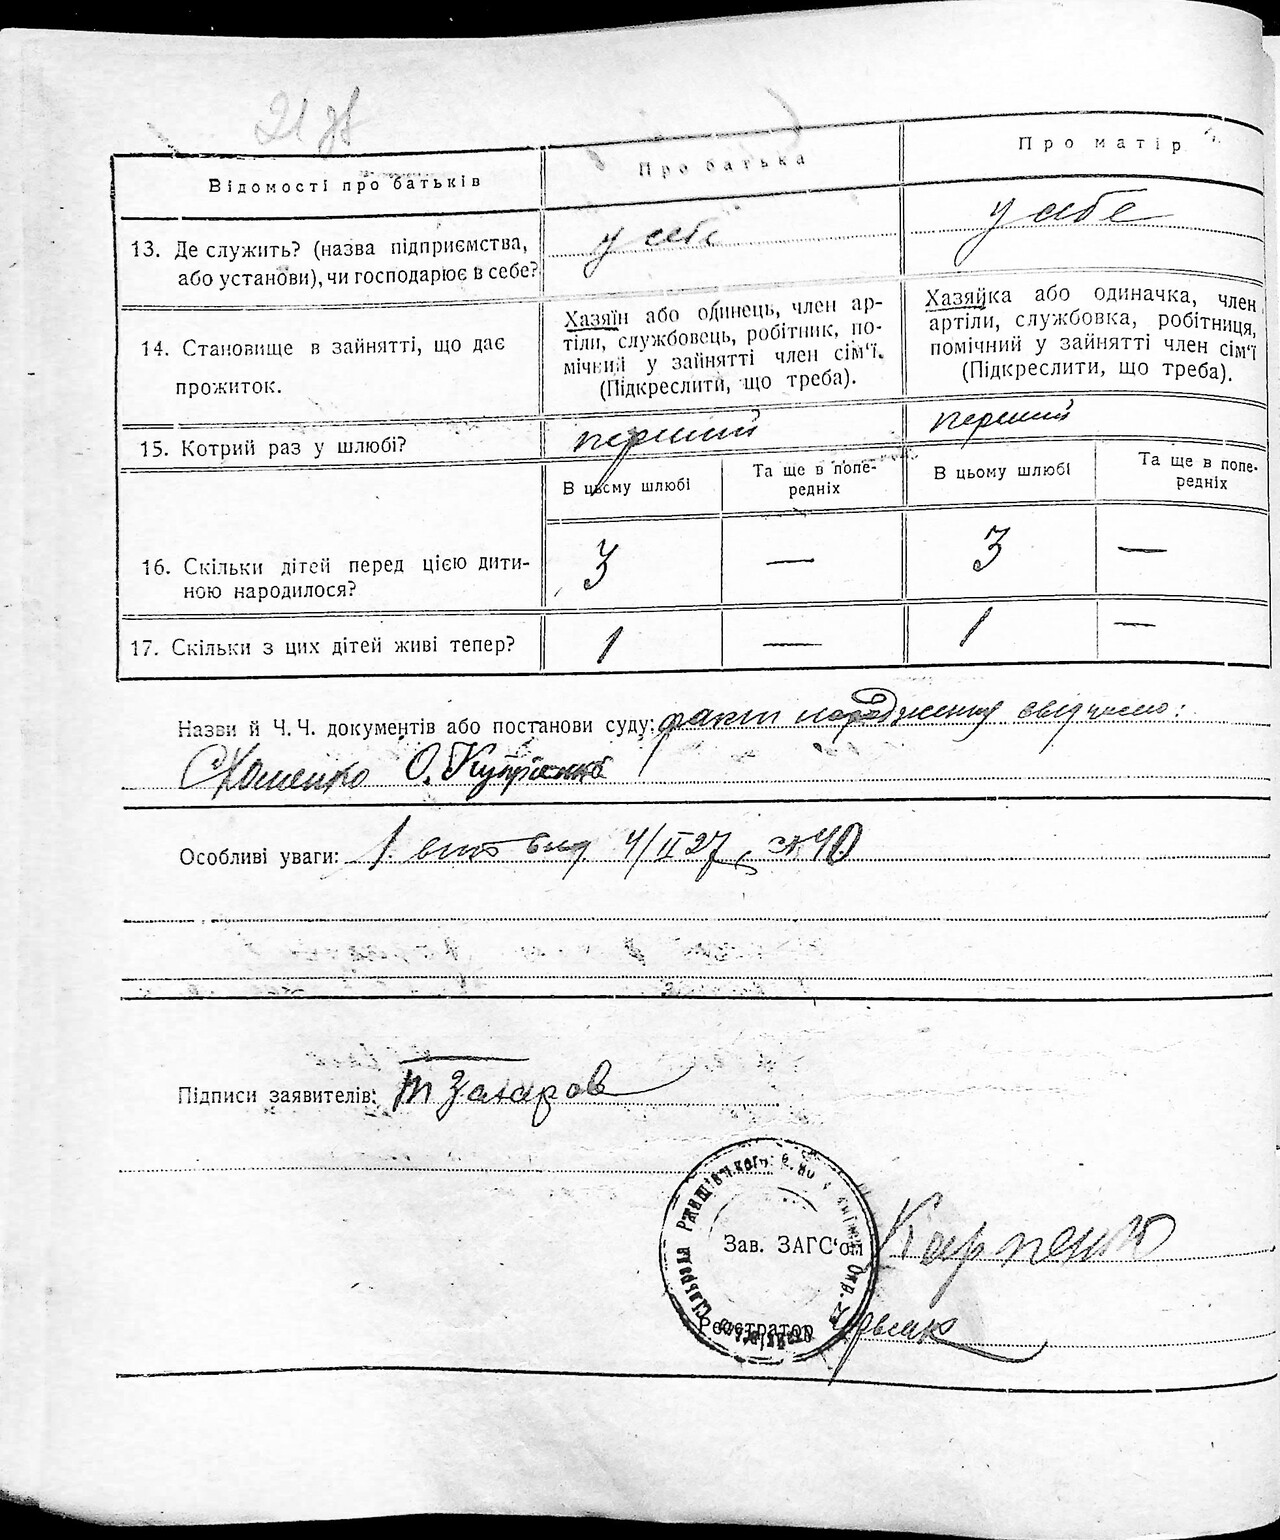 21 зв
Відомості про батьків
Про батька
Про матір
13. Де служить? (назва підприємства,
або установи), чи господарює в себе?
у себе
у себе
14. Становище в зайнятті, що дає
прожиток.
Хазяїн або одинець, член ар-
тіли, службовець, робітник, по-
мічний у зайнятті член сім'ї.
(Підкреслити, що треба).
Хазяйка або одиначка, член
артіли, службовка, робітниця,
помічний у зайнятті член сім'ї
(Підкреслити, що треба).
15. Котрий раз у шлюбі?
перший
перший
В цьому шлюбі
Та ще в попе-
редніх
В цьому шлюбі
Та ще в попе-
редніх
16. Скільки дітей перед цією дити-
ною народилося?
3
—
3
—
17. Скільки з цих дітей живі тепер?
1
—
1
—
Назви й Ч. Ч. документів або постанови суду: факт народження свідчимо:
О. Купрієнко
Особливі уваги: 1. вид 4/II 27
Підписи заявителів: Захаров
Зав. ЗАГС'ом Карпенко
Реєстратор